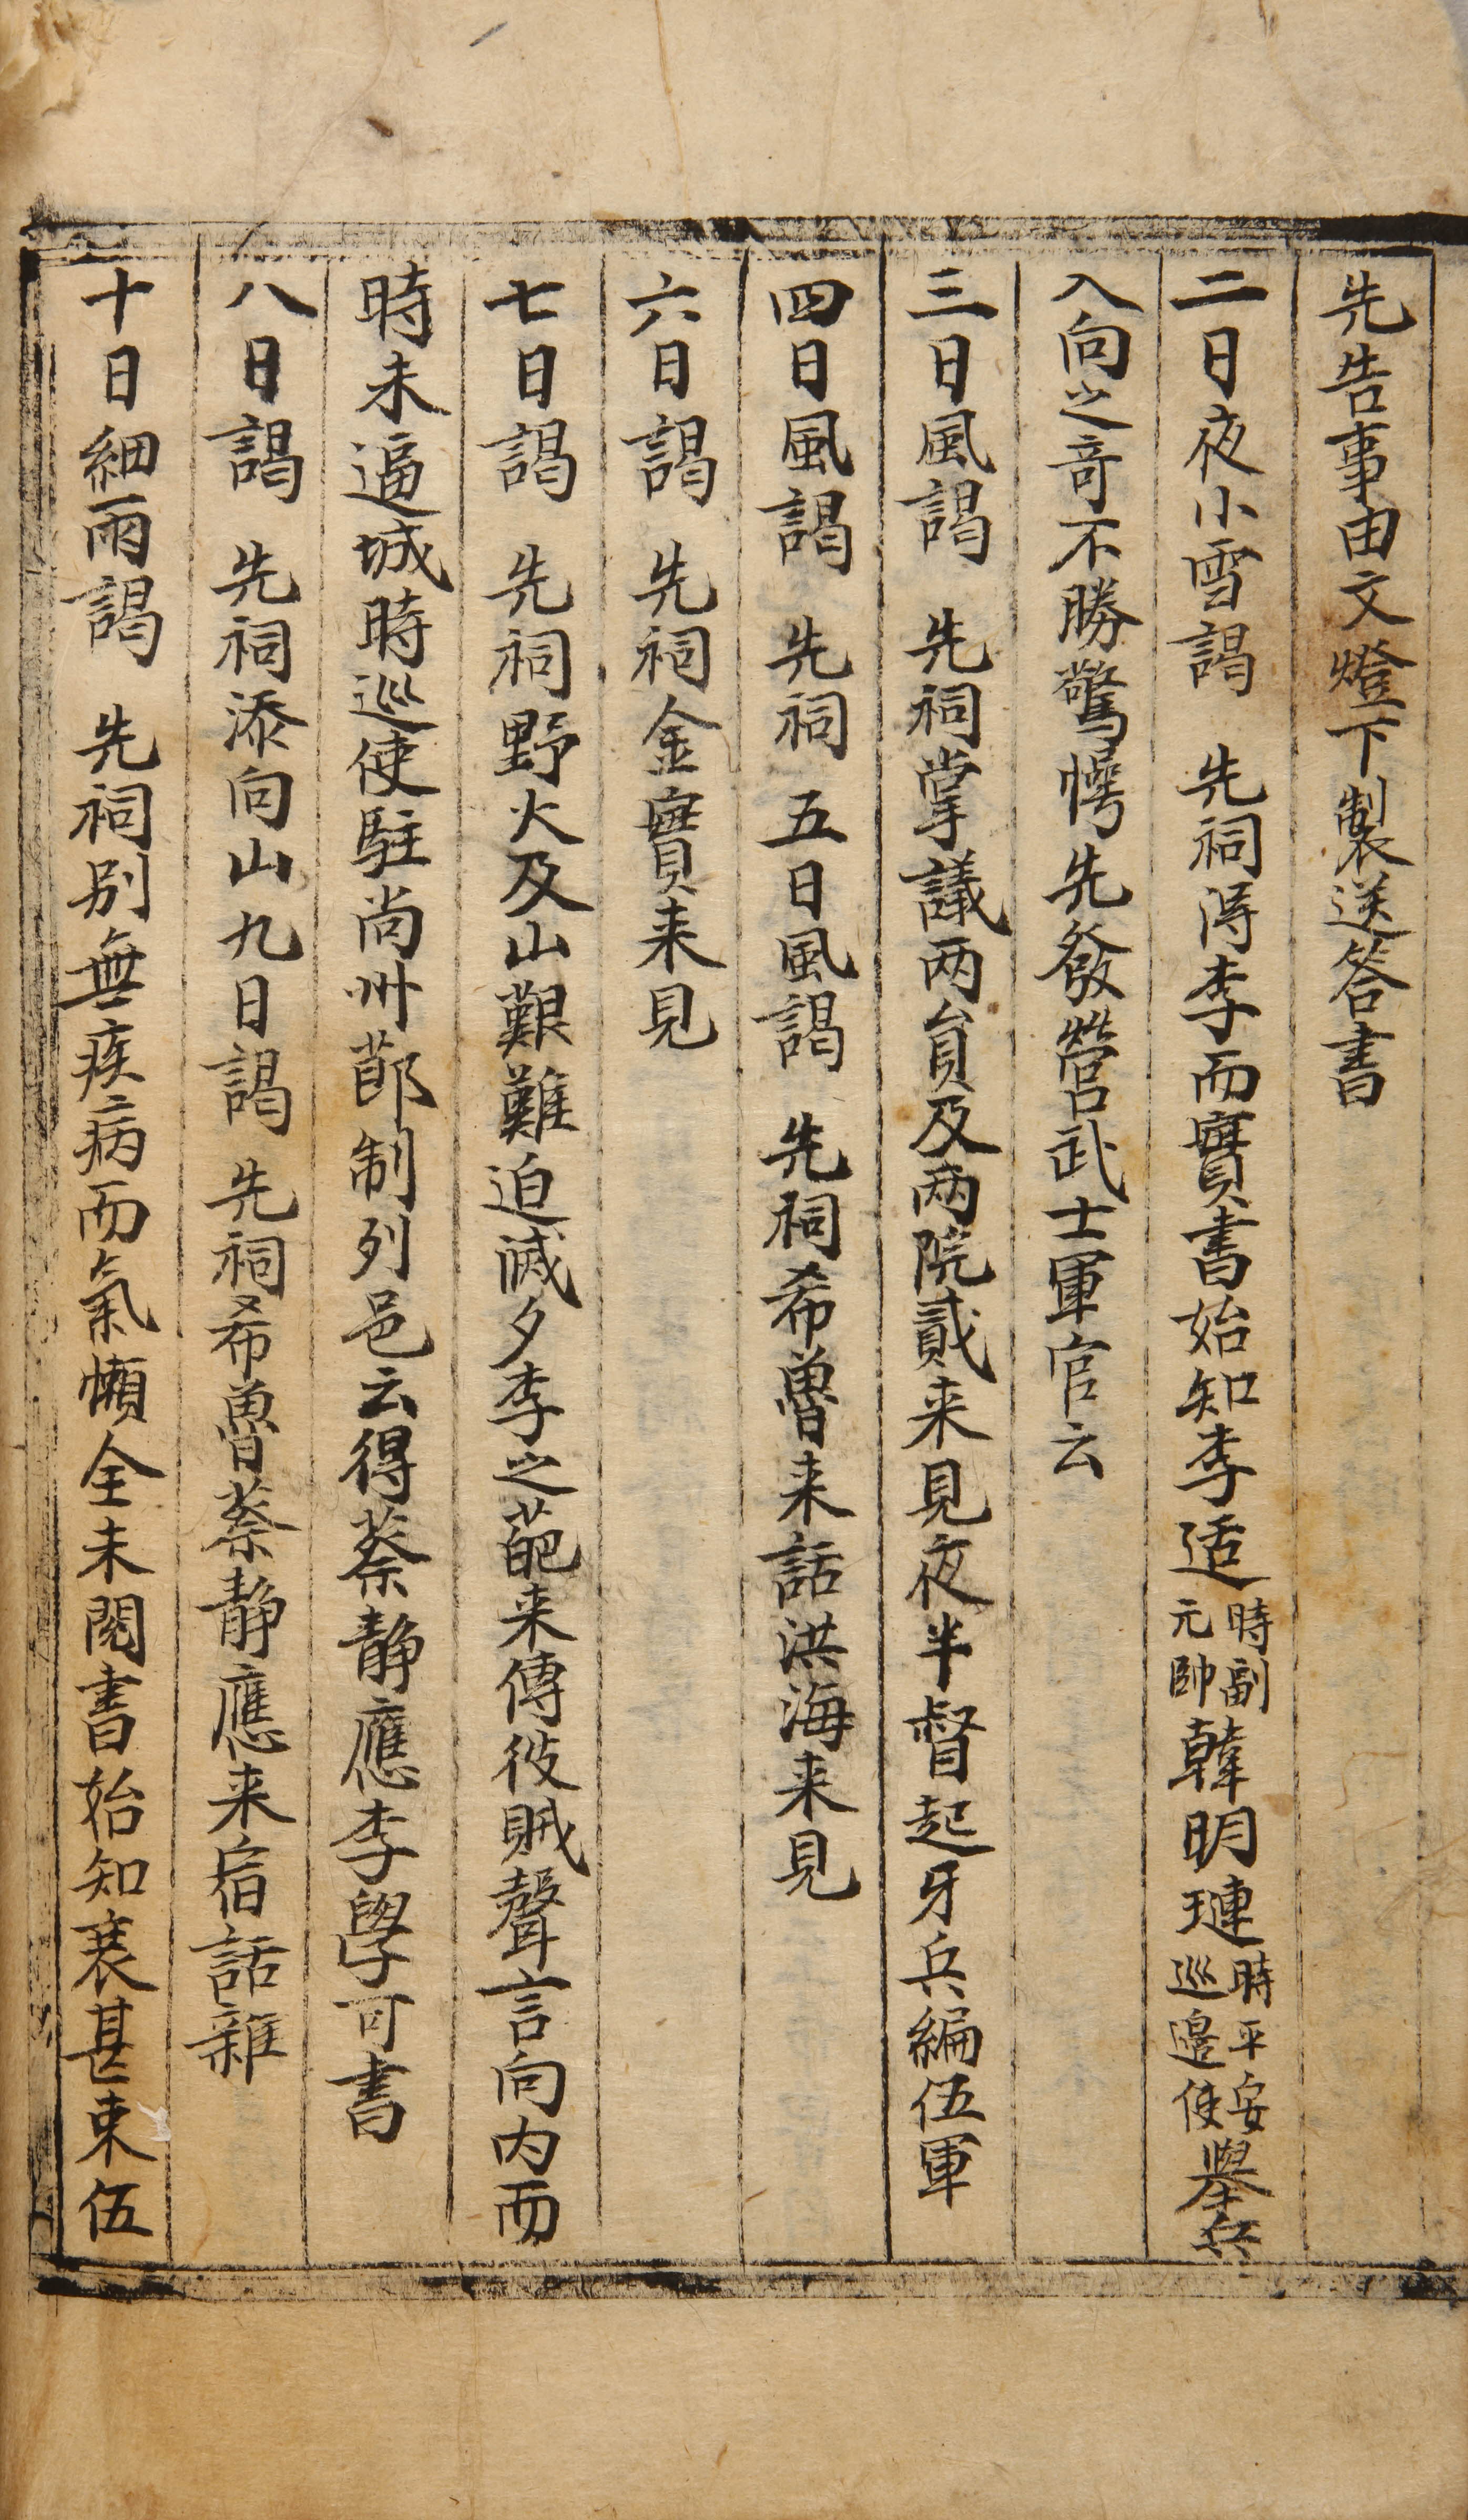 先告事由文燈下製送答書
二日夜小雪謁 先祠淂李而實書始知李适時副元帥韓明璉時平安巡邊使擧兵
入向之竒不勝驚愕先發營武士軍官云
三日風謁 先祠掌議两貟及两院貳来見夜半督起牙兵編伍軍
四日風謁 先祠 五日風謁 先祠希魯来話洪海来見
六日謁 先祠金實来見
七日謁 先祠野火及山艱難迫滅夕李之葩来傳彼賊聲言向内而
時未逼城時巡使駐尚州莭制列邑云得蔡静應李學可書
八日謁 先祠添向山九日謁 先祠希魯蔡静應来宿話雜
十日細雨謁 先祠别無疾病而氣懶全未閱書始知衰甚束伍